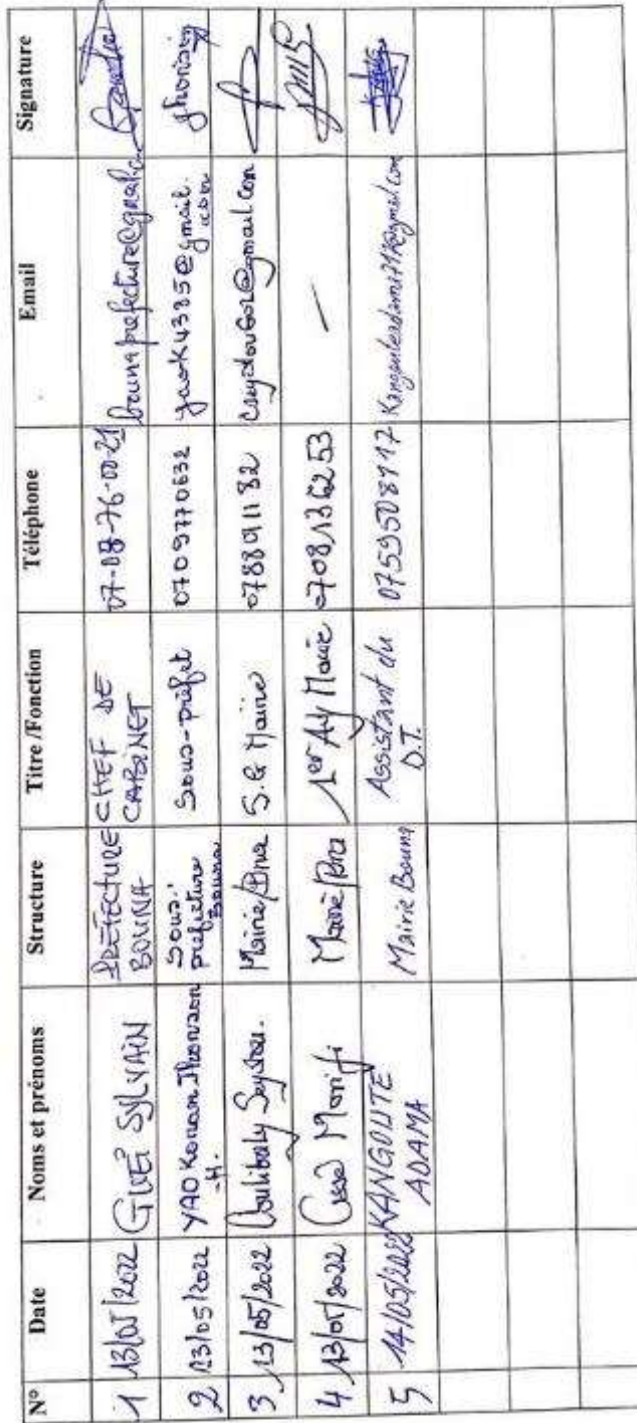 N° Date Noms et prénoms Structure Titre /Fonction Téléphone Email Signature
1 13/05/2022 GUEÏ SYLVAIN PREFECTURE BOUNA CHEF DE CABINET 07-08-76-00-21
2 13/05/2022 YAO Konan Thomson -H. Sous-préfecture Bouna Sous-préfet 0709770632 yaok4385@gmail.com
3 13/05/2022 Coulibaly Seydou. Mairie/Bna S.G Mairie 0788891182 @gmail.com
4 13/05/2022 Mairie/Bna 1er Adj Maire 0708136253 —
5 14/05/2022 KANGOUTE ADAMA Mairie Bouna Assistant du D.T. 0759508117